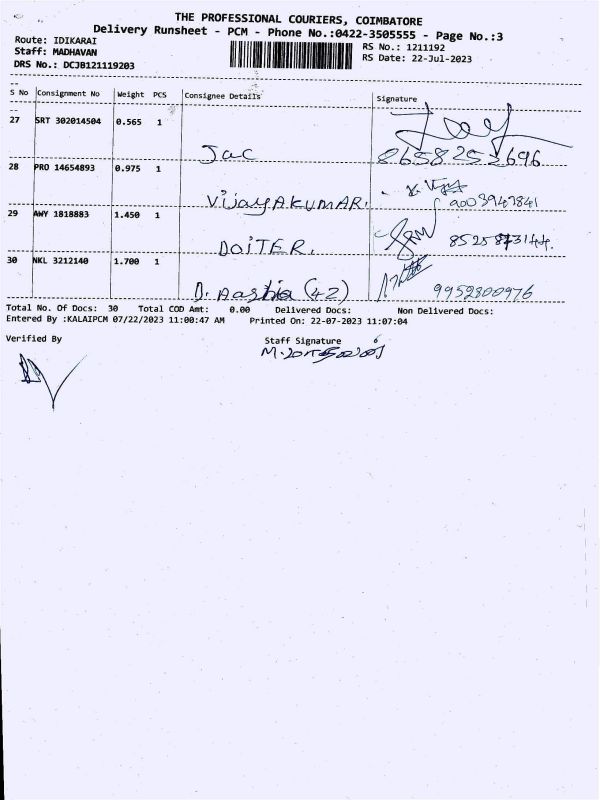 THE PROFESSIONAL COURIERS, COIMBATORE
Delivery Runsheet - PCM - Phone No.:0422-3505555 - Page No.:3
Route: IDIKARAI
RS No.: 1211192
Staff: MADHAVAN
RS Date: 22-Jul-2023
DRS No.: DCJB121119203
S No Consignment No Weight PCS Consignee Details Signature
27 SRT 302014504 0.565 1
Jac 8658253696
28 PRO 14654893 0.975 1
VijayAKUMAR. 9003947841
29 AWY 1818883 1.450 1
DOiTER.
30 NKL 3212140 1.700 1
D. Aashia (42) 9952800976
Total No. Of Docs: 30 Total COD Amt: 0.00 Delivered Docs: Non Delivered Docs:
Entered By :KALAIPCM 07/22/2023 11:00:47 AM Printed On: 22-07-2023 11:07:04
Verified By Staff Signature